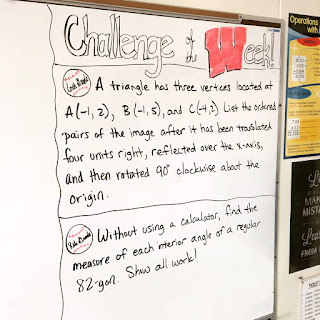 Challenge of the Week!
A triangle has three vertices located at
A(-1, 2), B(-1, 5), and C(-4, 2). List the ordered
pairs of the image after it has been translated
four units right, reflected over the x-axis,
and then rotated 90° clockwise about the
origin.
Without using a calculator, find the
measure of each interior angle of a regular
82-gon. Show all work!
Operations
with